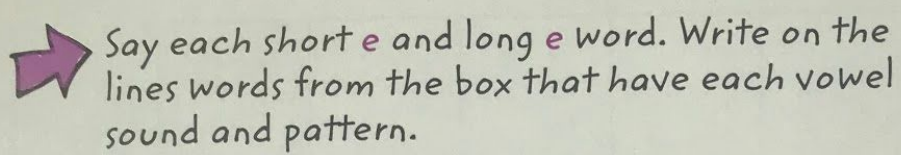 Say each short e and long e word. Write on the
lines words from the box that have each vowel
sound and pattern.